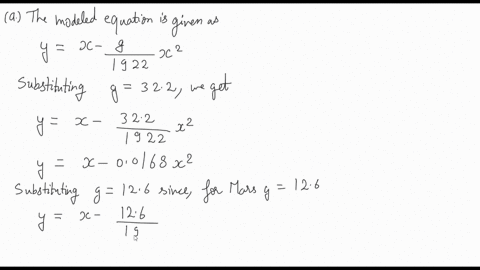 (a.) The modeled equation is given as
y = x - g/1922 x²
Substituting g = 32.2, we get
y = x - 32.2/1922 x²
y = x - 0.0168 x²
Substituting g = 12.6 since, for Mars g = 12.6
y = x - 12.6/19